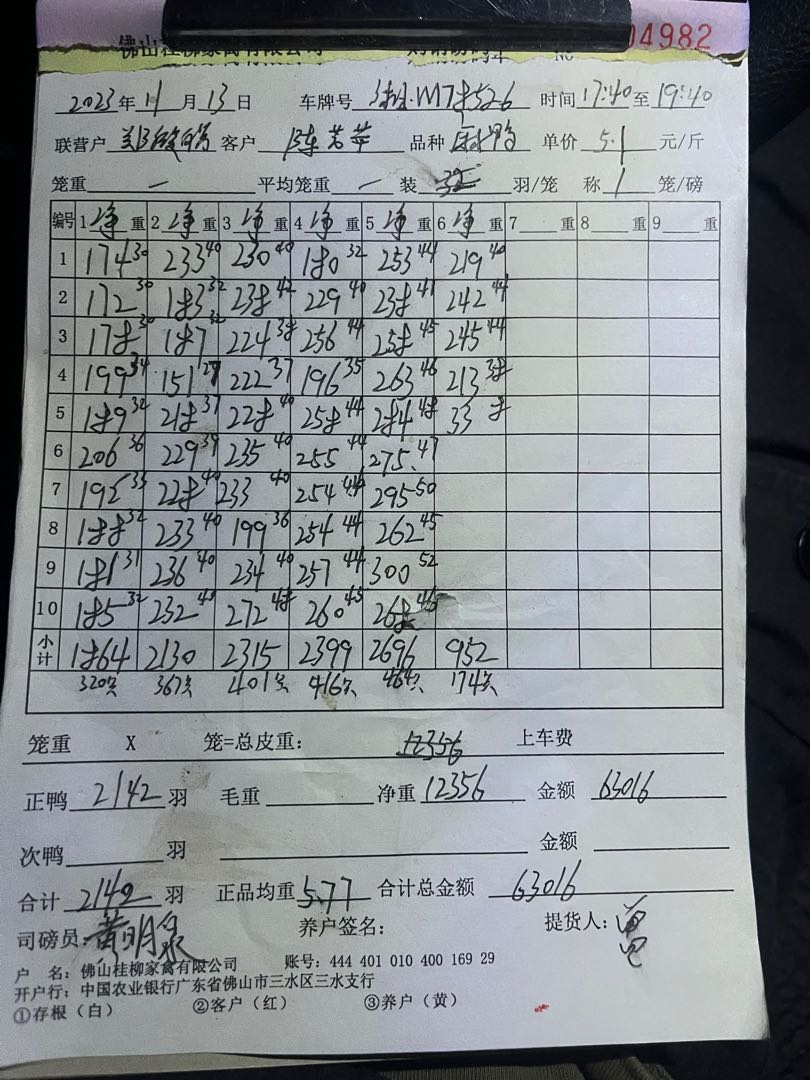 佛山桂柳家禽有限公司 04982
2023年11月13日 车牌号 M78526 时间17:40至19:40
联营户 客户 陈 苹 品种 麻鸭 单价 5.1 元/斤
笼重 — 平均笼重 — 装 32 羽/笼 称 1 笼/磅
编号 1净重 2净重 3净重 4净重 5净重 6净重 7 重 8 重 9 重
1 174 30 233 40 230 40 180 32 253 44 219 40
2 172 30 183 32 238 42 229 40 238 41 242 44
3 178 30 187 32 224 38 256 44 258 45 245 44
4 199 34 151 27 222 37 196 35 263 46 213 38
5 189 32 218 37 228 40 258 44 284 48 33 8
6 206 36 229 39 235 40 255 44 275 47
7 192 33 228 40 233 40 254 44 295 50
8 188 32 233 40 199 36 254 44 262 45
9 181 31 236 40 234 40 257 44 300 52
10 185 32 232 40 272 48 260 45 268 46
小计 1864 2130 2315 2399 2696 952
320只 367只 401只 416只 464只 174只
笼重 X 笼=总皮重: 12356 上车费
正鸭 2142 羽 毛重 净重 12356 金额 63016
次鸭 羽 金额
合计 2142 羽 正品均重 5.77 合计总金额 63016
司磅员: 黄明泉 养户签名: 提货人:
户 名: 佛山桂柳家禽有限公司 账号: 444 401 010 400 169 29
开户行: 中国农业银行广东省佛山市三水区三水支行
①存根(白) ②客户(红) ③养户(黄)